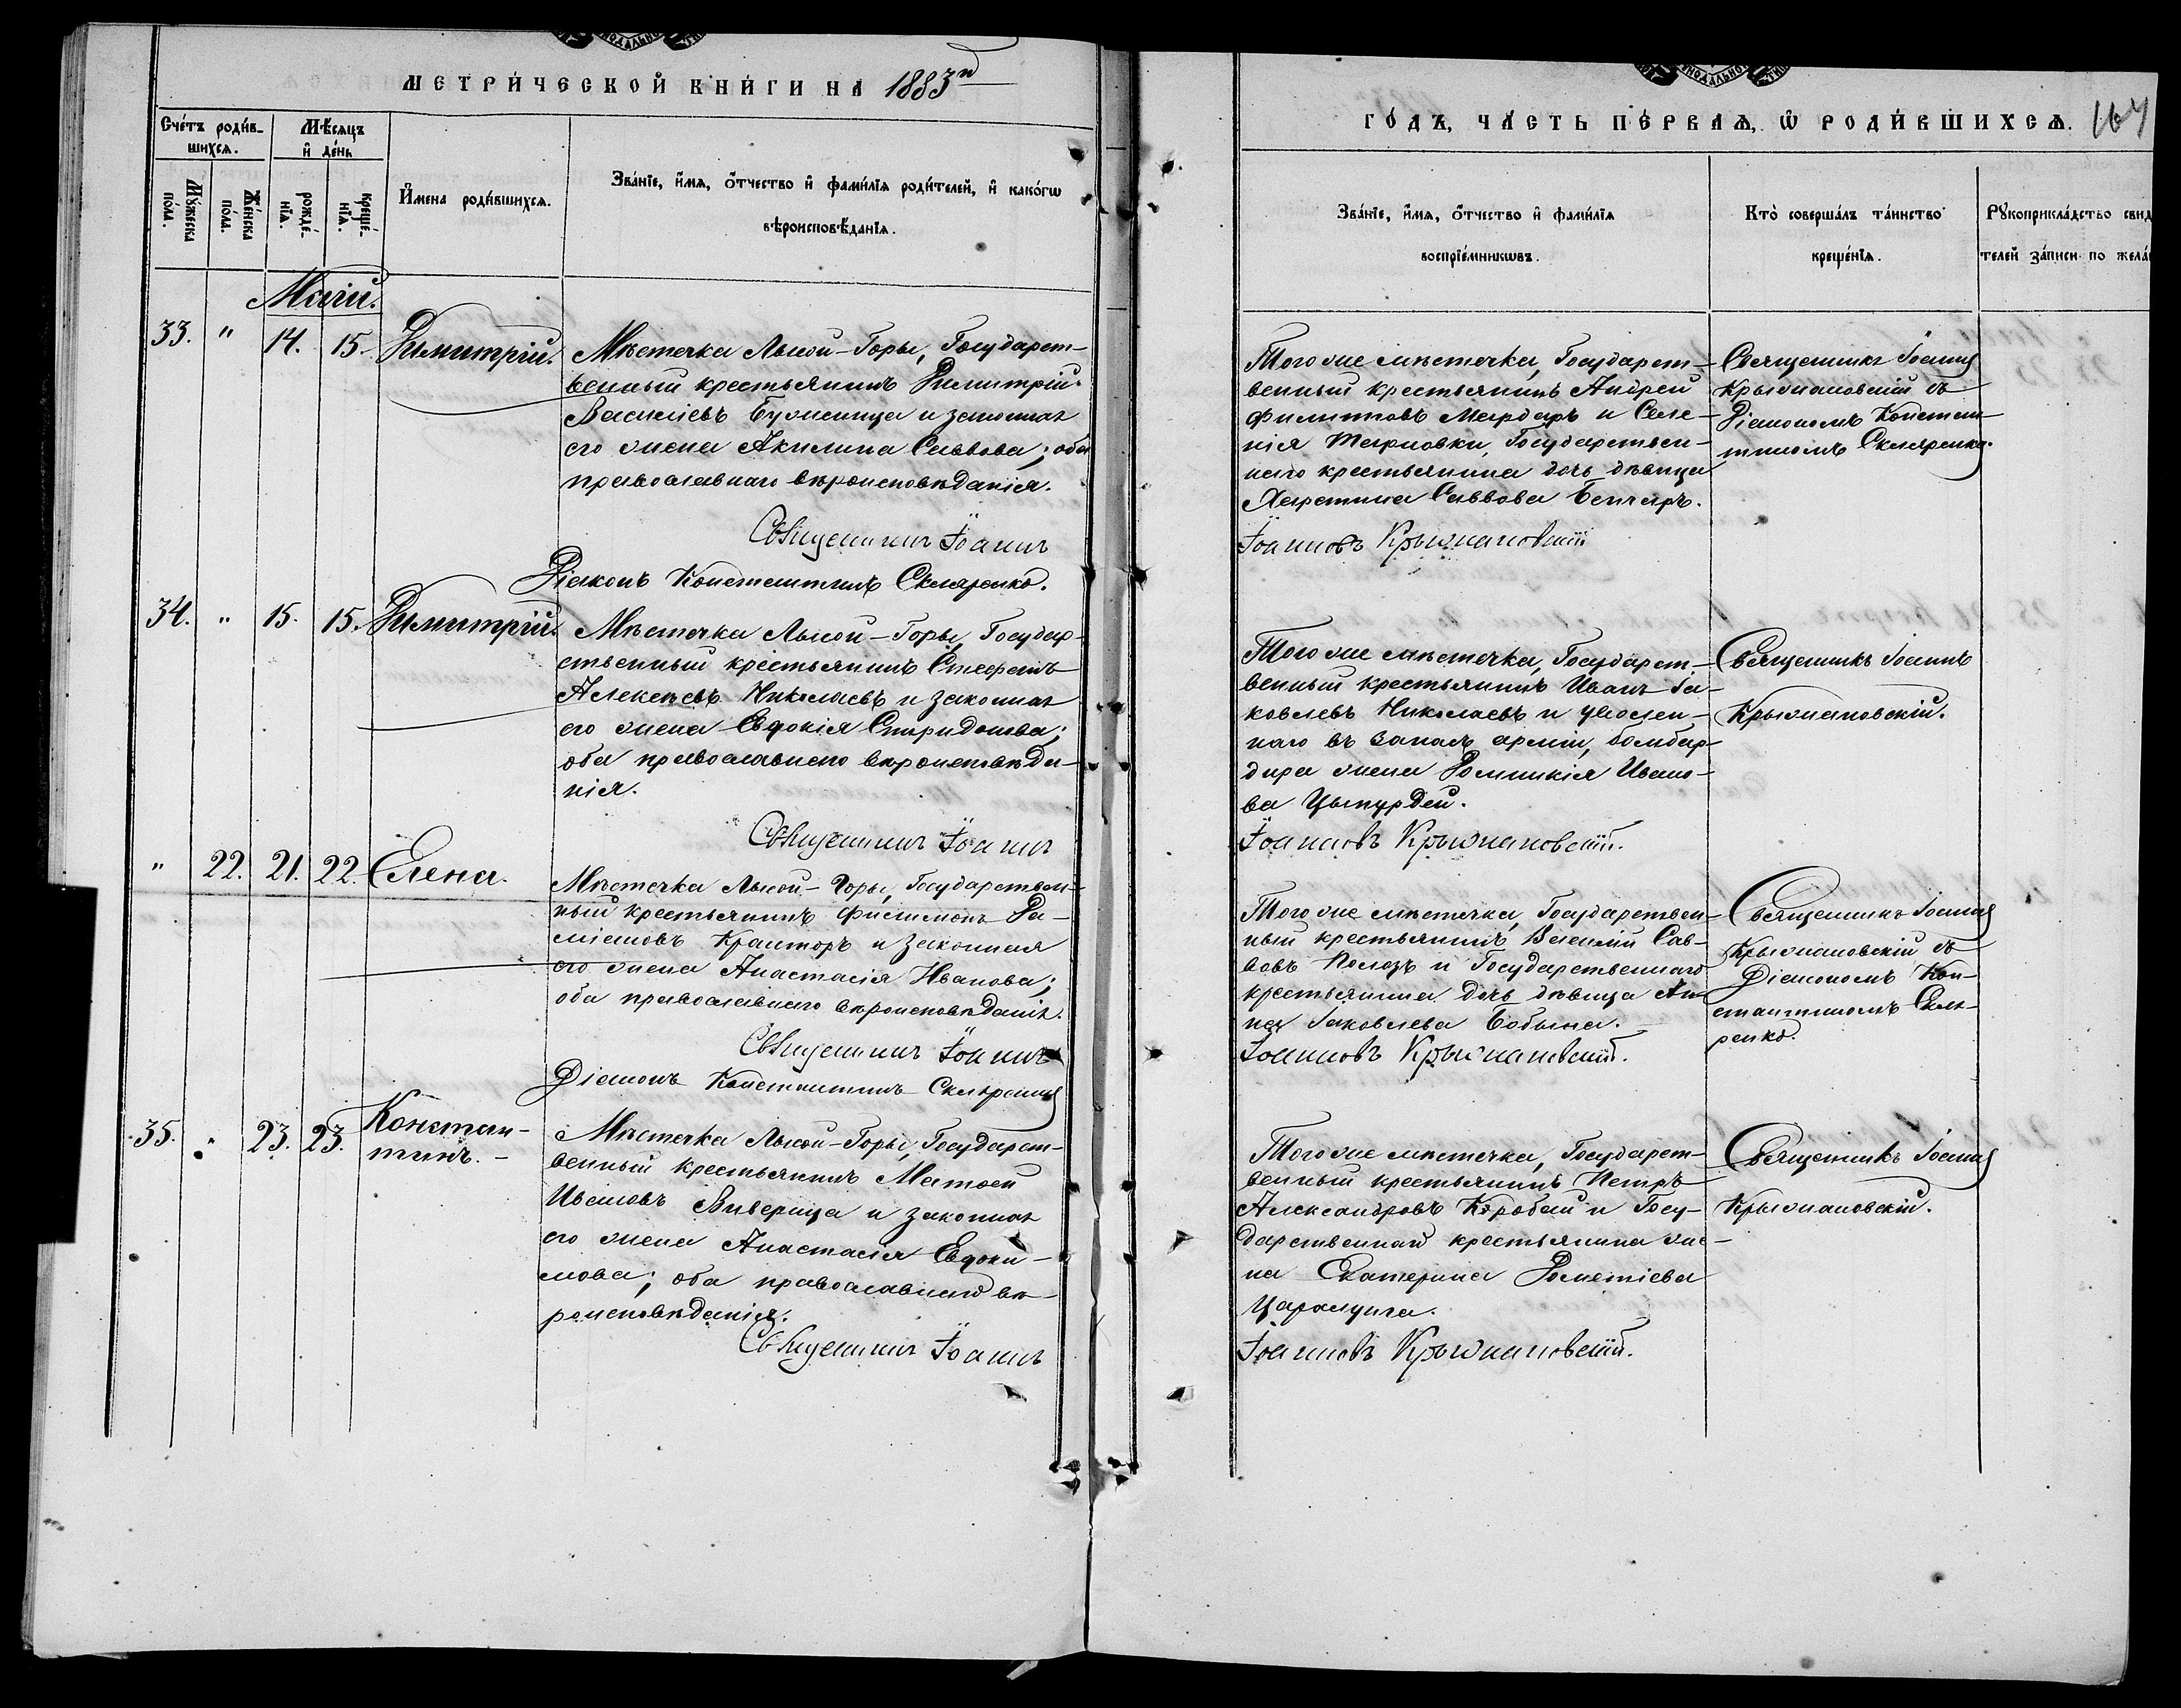 МЕТРИ́ЧЕСКОЙ КНИ́ГИ НА 1883й
Сче́тъ роди́в-
шихсѧ.
Мѣ́сѧцъ
и҆ де́нь
Мꙋ́жеска
по́ла.
Же́нска
по́ла.
рожде́-
нїѧ.
креще́-
нїѧ.
И҆мена роди́вшихсѧ.
Зва́нїе, и҆́мѧ, ѻ҆́тчество и҆ фами́лїѧ роди́телей, и҆ како́гѡ
вѣроисповѣ́данїѧ.
Маій.
33. " 14. 15. Димитрій.
Мѣстечка Лысой-Горы, Государст-
венный крестьянинъ Димитрій
Василіевъ Буженица и законная
его жена Акилина Саввова; оба
православнаго вѣроисповѣданія.
Священникъ Іоаннъ
Діаконъ Константинъ Скляренко.
34. " 15. 15. Димитрій.
Мѣстечка Лысой-Горы, Государ-
ственный крестьянинъ Стефанъ
Алексѣевъ Николаевъ и законная
его жена Евдокія Спиридонова;
оба православнаго вѣроисповѣда-
нія.
Священникъ Іоаннъ
" 22. 21. 22. Елена.
Мѣстечка Лысой-Горы, Государствен-
ный крестьянинъ Филимонъ Да-
міановъ Краиторъ и законная
его жена Анастасія Иванова;
оба православнаго вѣроисповѣданія.
Священникъ Іоаннъ
Діаконъ Константинъ Скляренко
35. " 23. 23. Констан-
тинъ.
Мѣстечка Лысой-Горы, Государст-
венный крестьянинъ Матөей
Ивановъ Виверица и законная
его жена Анастасія Евдоки-
мова; оба православнаго вѣ-
роисповѣданія.
Священникъ Іоаннъ
ГО́ДЪ, ЧА́СТЬ ПЕ́РВАѦ, Ѡ҆ РОДИ́ВШИХСѦ. 167
Зва́нїе, и҆́мѧ, ѻ҆́тчество и҆ фами́лїѧ
воспрїе́мникѡвъ.
Кто̀ соверша́лъ та́инство
креще́нїѧ.
Рꙋкоприкла́дство свид
телей за́писи по жела́
Того же мѣстечка, Государст-
венный крестьянинъ Андрей
Филипповъ Мардаръ и Селе-
нія Терновки, Государствен-
наго крестьянина дочь дѣвица
Харитина Саввова Бенчаръ.
Іоанновъ Крыжановскій
Священникъ Іоаннъ
Крыжановскій съ
Діакономъ Констан-
тиномъ Скляренко.
Того же мѣстечка, Государст-
венный крестьянинъ Иванъ Іа-
ковлевъ Николаевъ и уволен-
наго въ запасъ арміи, бомбар-
дира жена Домникія Ивано-
ва Цыпурдей.
Іоанновъ Крыжановскій.
Священникъ Іоаннъ
Крыжановскій.
Того же мѣстечка, Государствен-
ный крестьянинъ Василій Сав-
вовъ Полозъ и Государственнаго
крестьянина дочь дѣвица Ан-
на Іаковлева Бобына.
Іоанновъ Крыжановскій.
Священникъ Іоаннъ
Крыжановскій съ
Діакономъ Кон-
стантиномъ Скля-
ренко.
Того же мѣстечка, Государст-
венный крестьянинъ Петръ
Александровъ Коробан и Госу-
дарственнаго крестьянина же-
на Екатерина Дометіева
Царалунга.
Іоанновъ Крыжановскій.
Священникъ Іоаннъ
Крыжановскій.